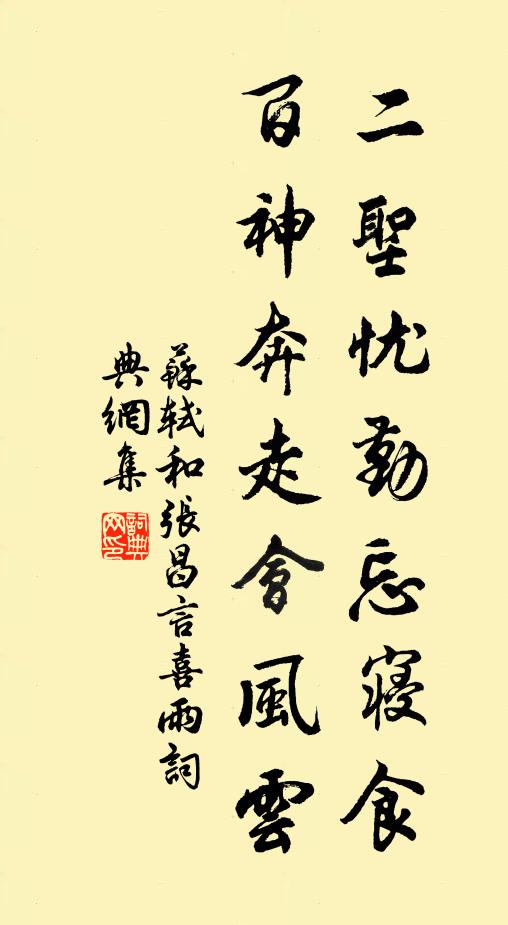 二聖忧勤忘寝食
百神奔走會風雲
蘇軾和張昌言喜雨詞
典網集
詞典网印